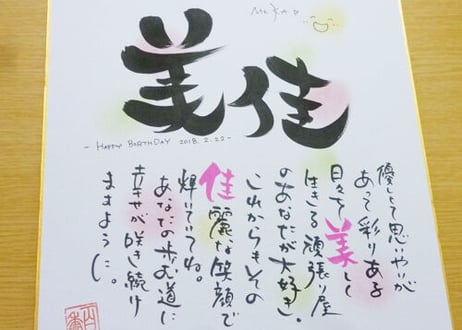 美佳
- HAPPY BIRTHDAY 2018.2.22 -
優しくて思いやりが
あって彩りある
日々を美しく
生きる頑張り屋
のあなたが大好き。
これからもその
佳麗な笑顔で
輝いていてね。
あなたの歩む道に
幸せが咲き続け
ますように。